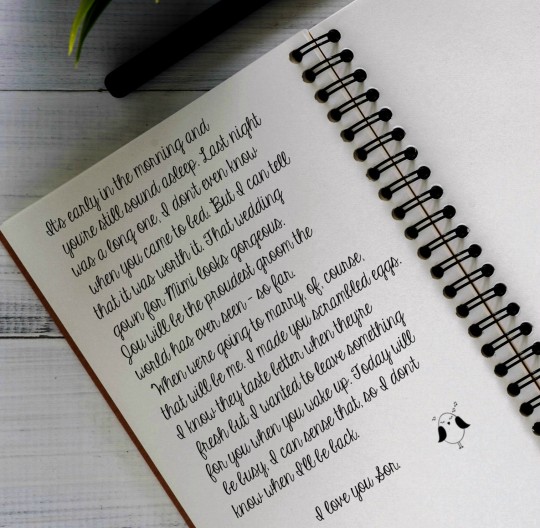 It's early in the morning and
you're still sound asleep. Last night
was a long one. I don't even know
when you came to bed. But I can tell
that it was worth it. That wedding
gown for Mimi looks gorgeous.
You will be the proudest groom the
world has ever seen - so far.
When we're going to marry, of course,
that will be me. I made you scrambled eggs.
I know they taste better when they're
fresh but I wanted to leave something
for you when you wake up. Today will
be busy, I can sense that, so I don't
know when I'll be back.
I love you Sor.
z z z z z